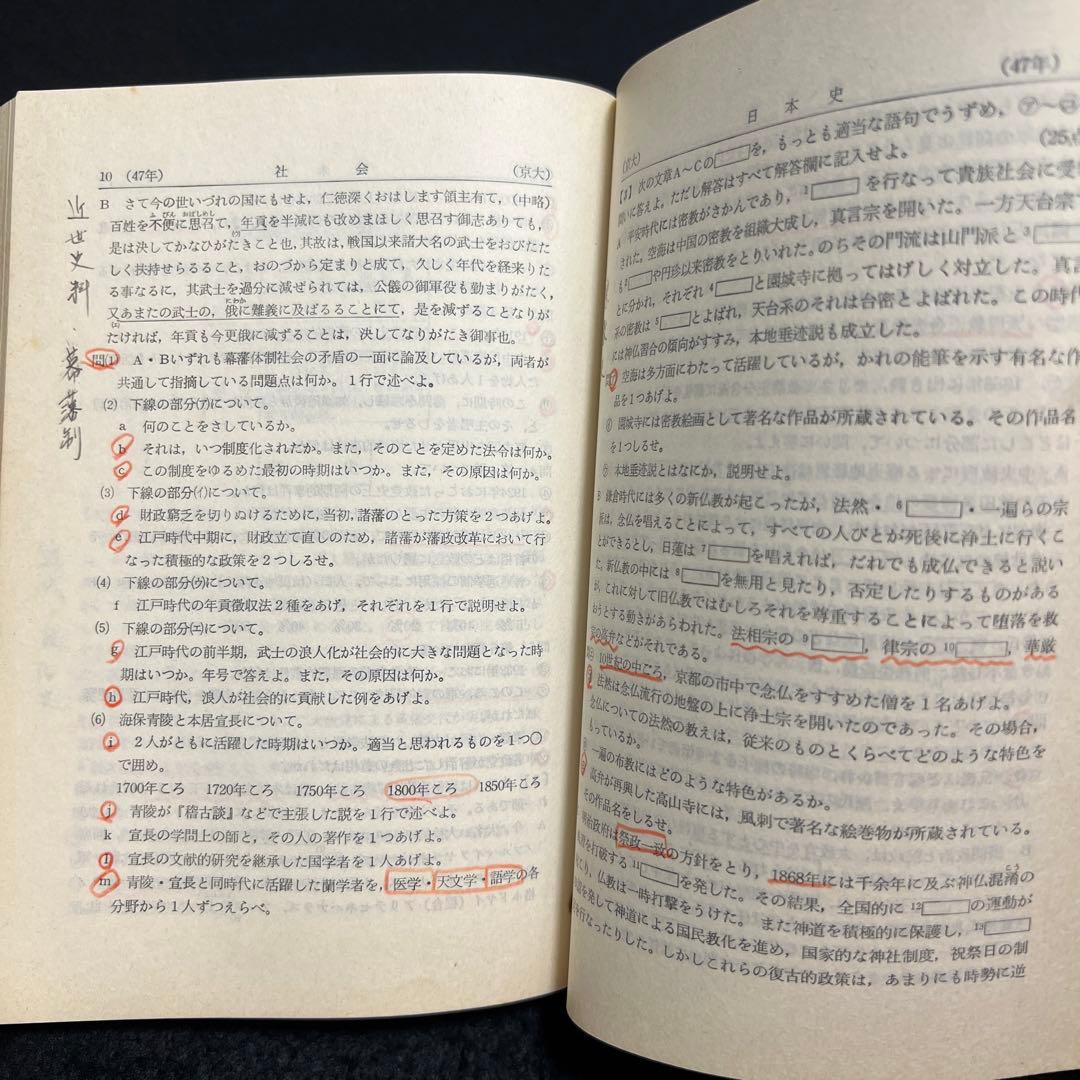 10 (47年) 社会 (京大)
近世史料・幕藩制
B さて今の世いづれの国にもせよ，仁徳深くおはします領主有て，(中略)
百姓を不便に思召て，年貢を半減にも改めまほしく思召す御志ありても，
ふびん おぼしめし
是は決してかなひがたきこと也，其故は，戦国以来諸大名の武士をおびたた
しく扶持せらるること，おのづから定まりと成て，久しく年代を経来りた
る事なるに，其武士を過分に減ぜられては，公儀の御軍役も勤まりがたく，
又あまたの武士の，俄に難義に及ばるることにて，是を減ずることなりが
にわか
たければ，年貢も今更俄に減ずることは，決してなりがたき御事也。
問(1) A・Bいずれも幕藩体制社会の矛盾の一面に論及しているが，両者が
共通して指摘している問題点は何か。1行で述べよ。
(2) 下線の部分(ア)について。
a 何のことをさしているか。
b それは，いつ制度化されたか。また，そのことを定めた法令は何か。
c この制度をゆるめた最初の時期はいつか。また，その原因は何か。
(3) 下線の部分(イ)について。
d 財政窮乏を切りぬけるために，当初，諸藩のとった方策を2つあげよ。
e 江戸時代中期に，財政立て直しのため，諸藩が藩政改革において行
なった積極的な政策を2つしるせ。
(4) 下線の部分(ウ)について。
f 江戸時代の年貢徴収法2種をあげ，それぞれを1行で説明せよ。
(5) 下線の部分(エ)について。
g 江戸時代の前半期，武士の浪人化が社会的に大きな問題となった時
期はいつか。年号で答えよ。また，その原因は何か。
h 江戸時代，浪人が社会的に貢献した例をあげよ。
(6) 海保青陵と本居宣長について。
i 2人がともに活躍した時期はいつか。適当と思われるものを1つ○
で囲め。
1700年ころ 1720年ころ 1750年ころ 1800年ころ 1850年ころ
j 青陵が『稽古談』などで主張した説を1行で述べよ。
k 宣長の学問上の師と，その人の著作を1つあげよ。
l 宣長の文献的研究を継承した国学者を1人あげよ。
m 青陵・宣長と同時代に活躍した蘭学者を，医学・天文学・語学の各
分野から1人ずつえらべ。
(京大) 日本史 (47年)
次の文章A～Cの を，もっとも適当な語句でうずめ，㋐～㋺
問いに答えよ。ただし解答はすべて解答欄に記入せよ。 (25
平安時代には密教がさかんであり， 1 を行なって貴族社会に受
された。空海は中国の密教を組織大成し，真言宗を開いた。一方天台宗
も 2 や円珍以来密教をとりいれた。のちその門流は山門派と 3
とに分かれ，それぞれ 4 と園城寺に拠ってはげしく対立した。真言
系の密教は 5 とよばれ，天台系のそれは台密とよばれた。この時代
には神仏習合の傾向がすすみ，本地垂迹説も成立した。
空海は多方面にわたって活躍しているが，かれの能筆を示す有名な作
品を1つあげよ。
園城寺には密教絵画として著名な作品が所蔵されている。その作品名
を1つしるせ。
本地垂迹説とはなにか，説明せよ。
B 鎌倉時代には多くの新仏教が起こったが，法然・ 6 ・一遍らの宗
派は，念仏を唱えることによって，すべての人びとが死後に浄土に行くこ
とができるとし，日蓮は 7 を唱えれば，だれでも成仏できると説い
た。新仏教の中には 8 を無用と見たり，否定したりするものがある
が，これに対して旧仏教ではむしろそれを尊重することによって堕落を救
おうとする動きがあらわれた。法相宗の 9 ，律宗の 10 ，華厳
宗の高弁などがそれである。
10世紀の中ごろ，京都の市中で念仏をすすめた僧を1名あげよ。
法然は念仏流行の地盤の上に浄土宗を開いたのであった。その場合，
念仏についての法然の教えは，従来のものとくらべてどのような特色を
もっているか。
一遍の布教にはどのような特色があるか。
高弁が再興した高山寺には，風刺で著名な絵巻物が所蔵されている。
その作品名をしるせ。
明治政府は祭政一致の方針をとり，1868年には千余年に及ぶ神仏混淆の
こう
を打破する 11 を発した。その結果，全国的に 12 の運動が
こり，仏教は一時打撃をうけた。また神道を積極的に保護し， 13
を発して神道による国民教化を進め，国家的な神社制度，祝祭日の制
を行なったりした。しかしこれらの復古的政策は，あまりにも時勢に逆